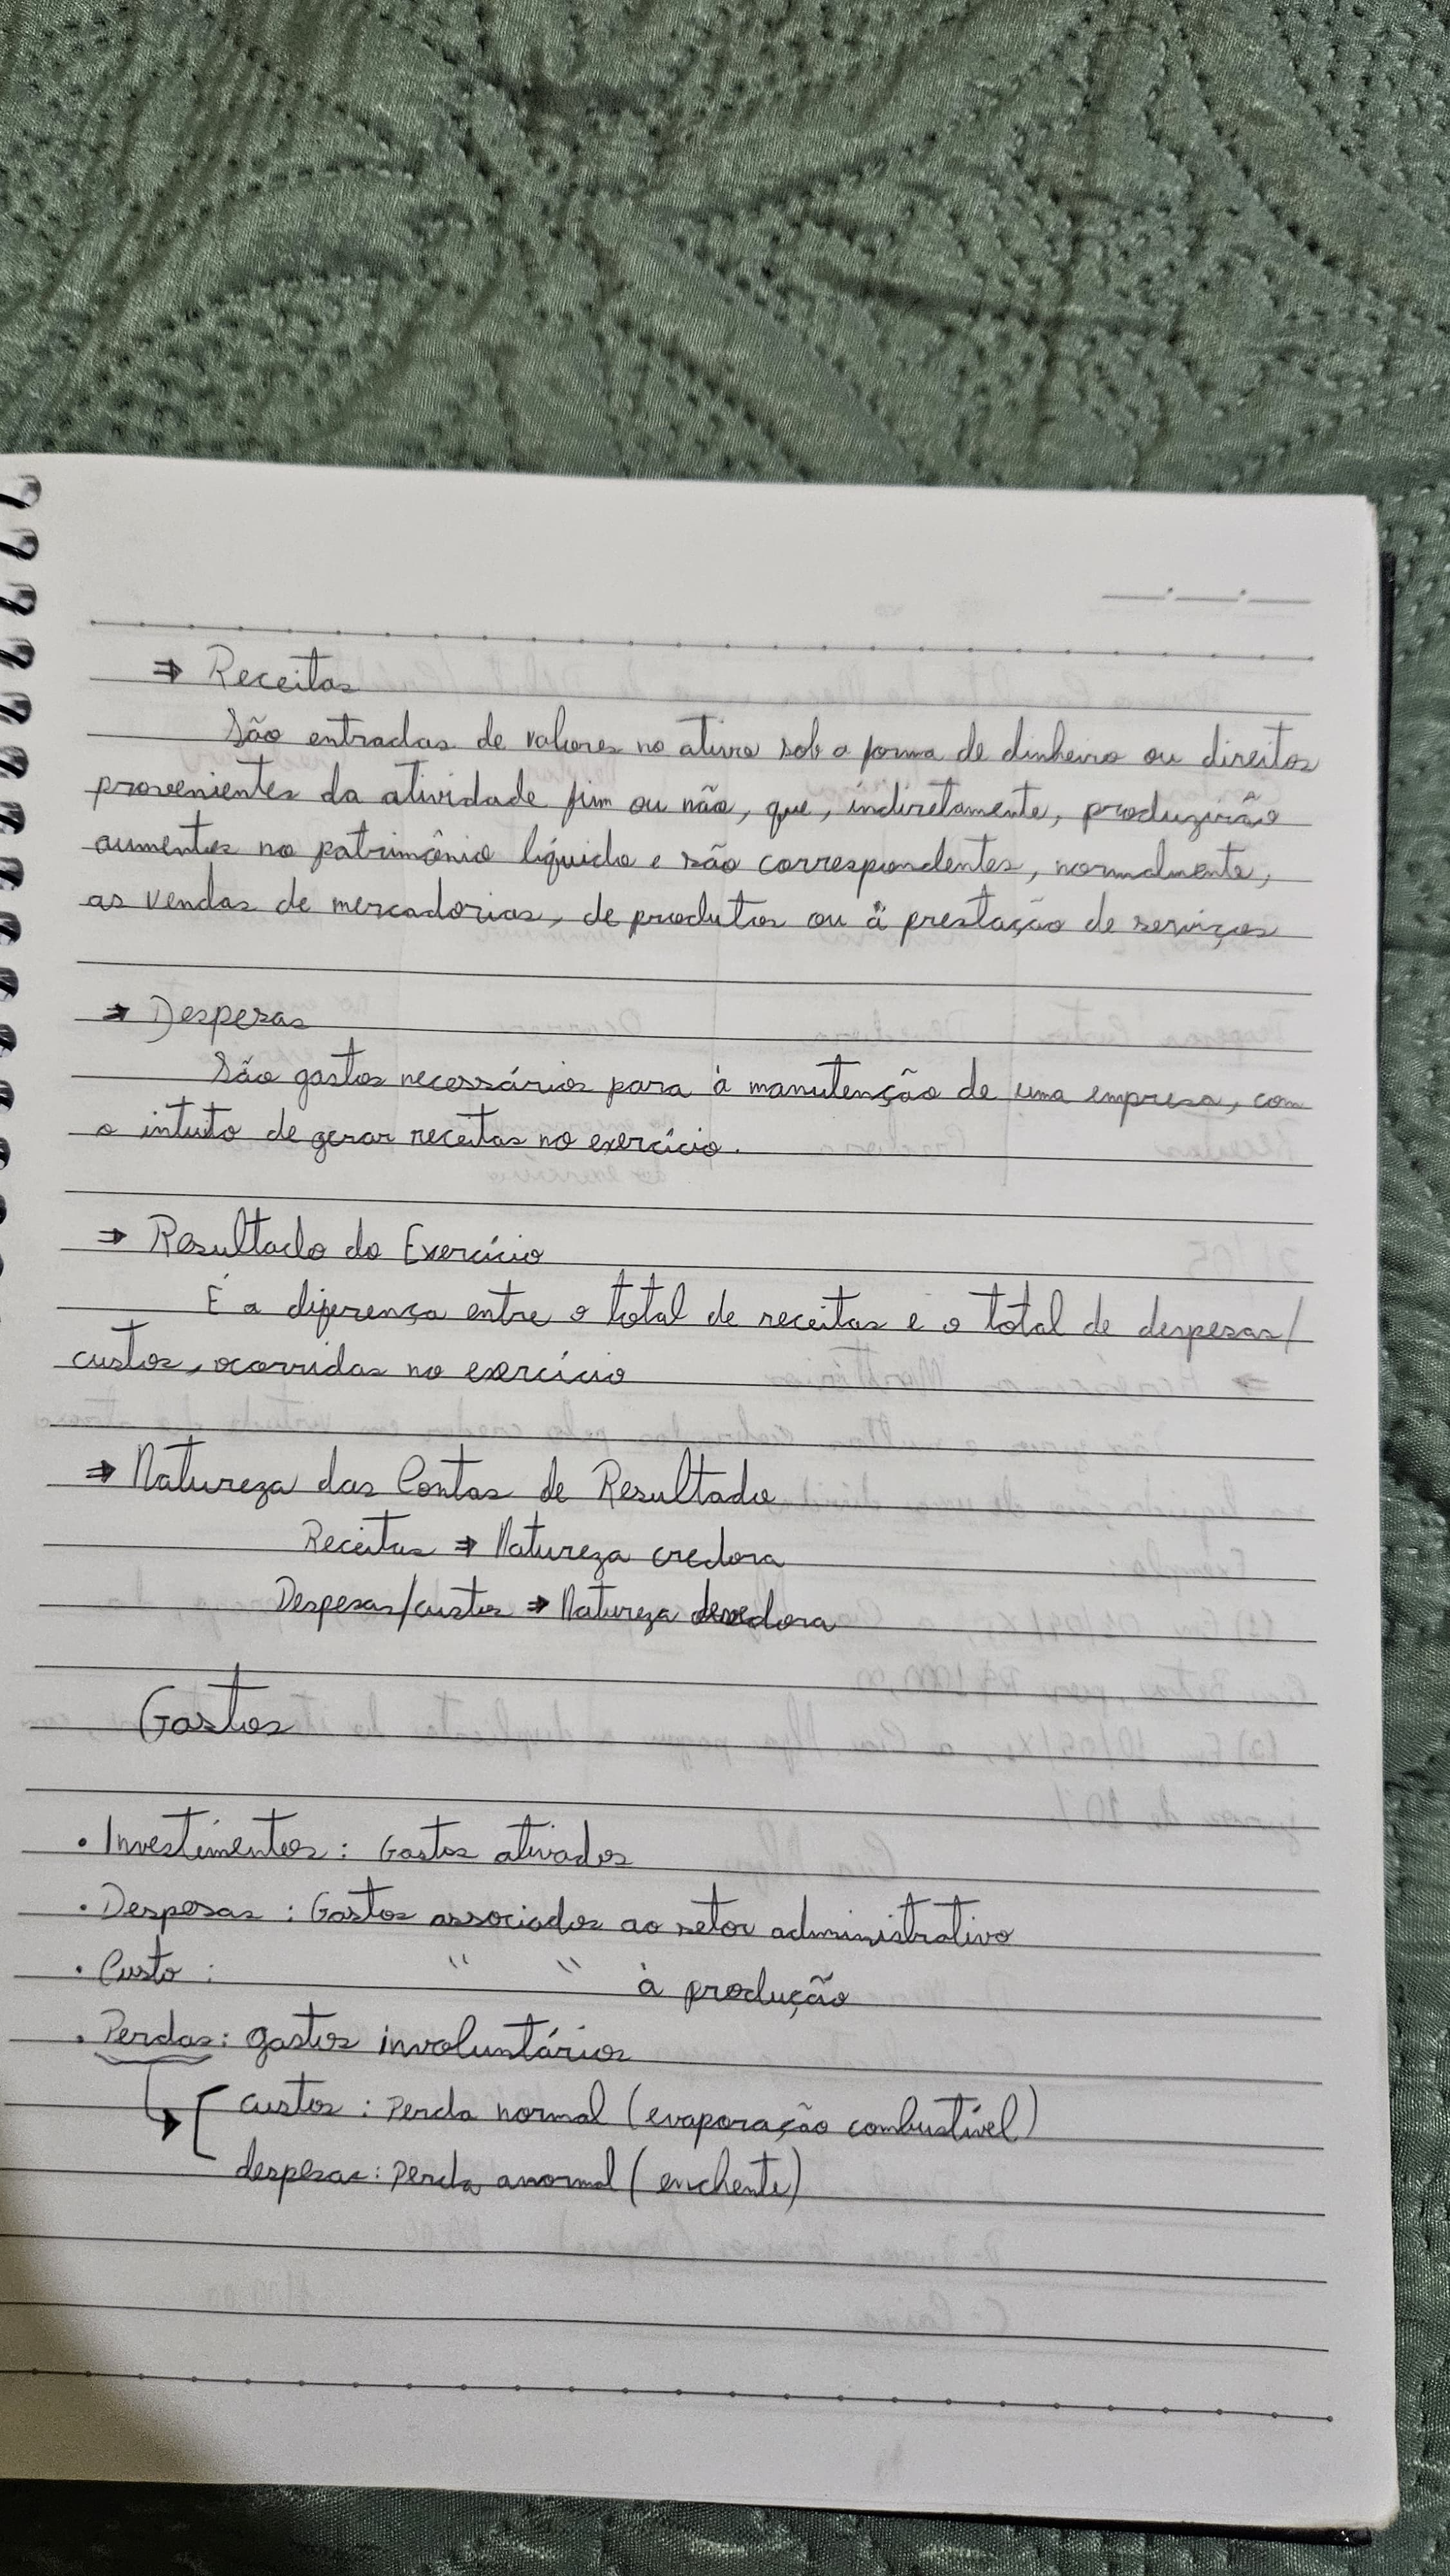 ⇒ Receitas
São entradas de valores no ativo sob a forma de dinheiro ou direitos
provenientes da atividade fim ou não, que, indiretamente, produzirão
aumentos no patrimônio líquido e são correspondentes, normalmente,
as vendas de mercadorias, de produtos ou à prestação de serviços
⇒ Despesas
São gastos necessários para à manutenção de uma empresa, com
o intuito de gerar receitas no exercício.
⇒ Resultado do Exercício
É a diferença entre o total de receitas e o total de despesas/
custos, ocorridas no exercício
⇒ Natureza das Contas de Resultado
Receitas ⇒ Natureza credora
Despesas/custos ⇒ Natureza devedora
Gastos
• Investimentos: Gastos ativados
• Despesas: Gastos associados ao setor administrativo
• Custo: " " à produção
• Perdas: gastos involuntários
custos: Perda normal (evaporação combustível)
despesas: Perda anormal (enchente)